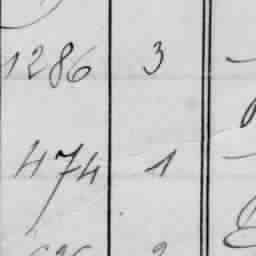 1286 3
474 1